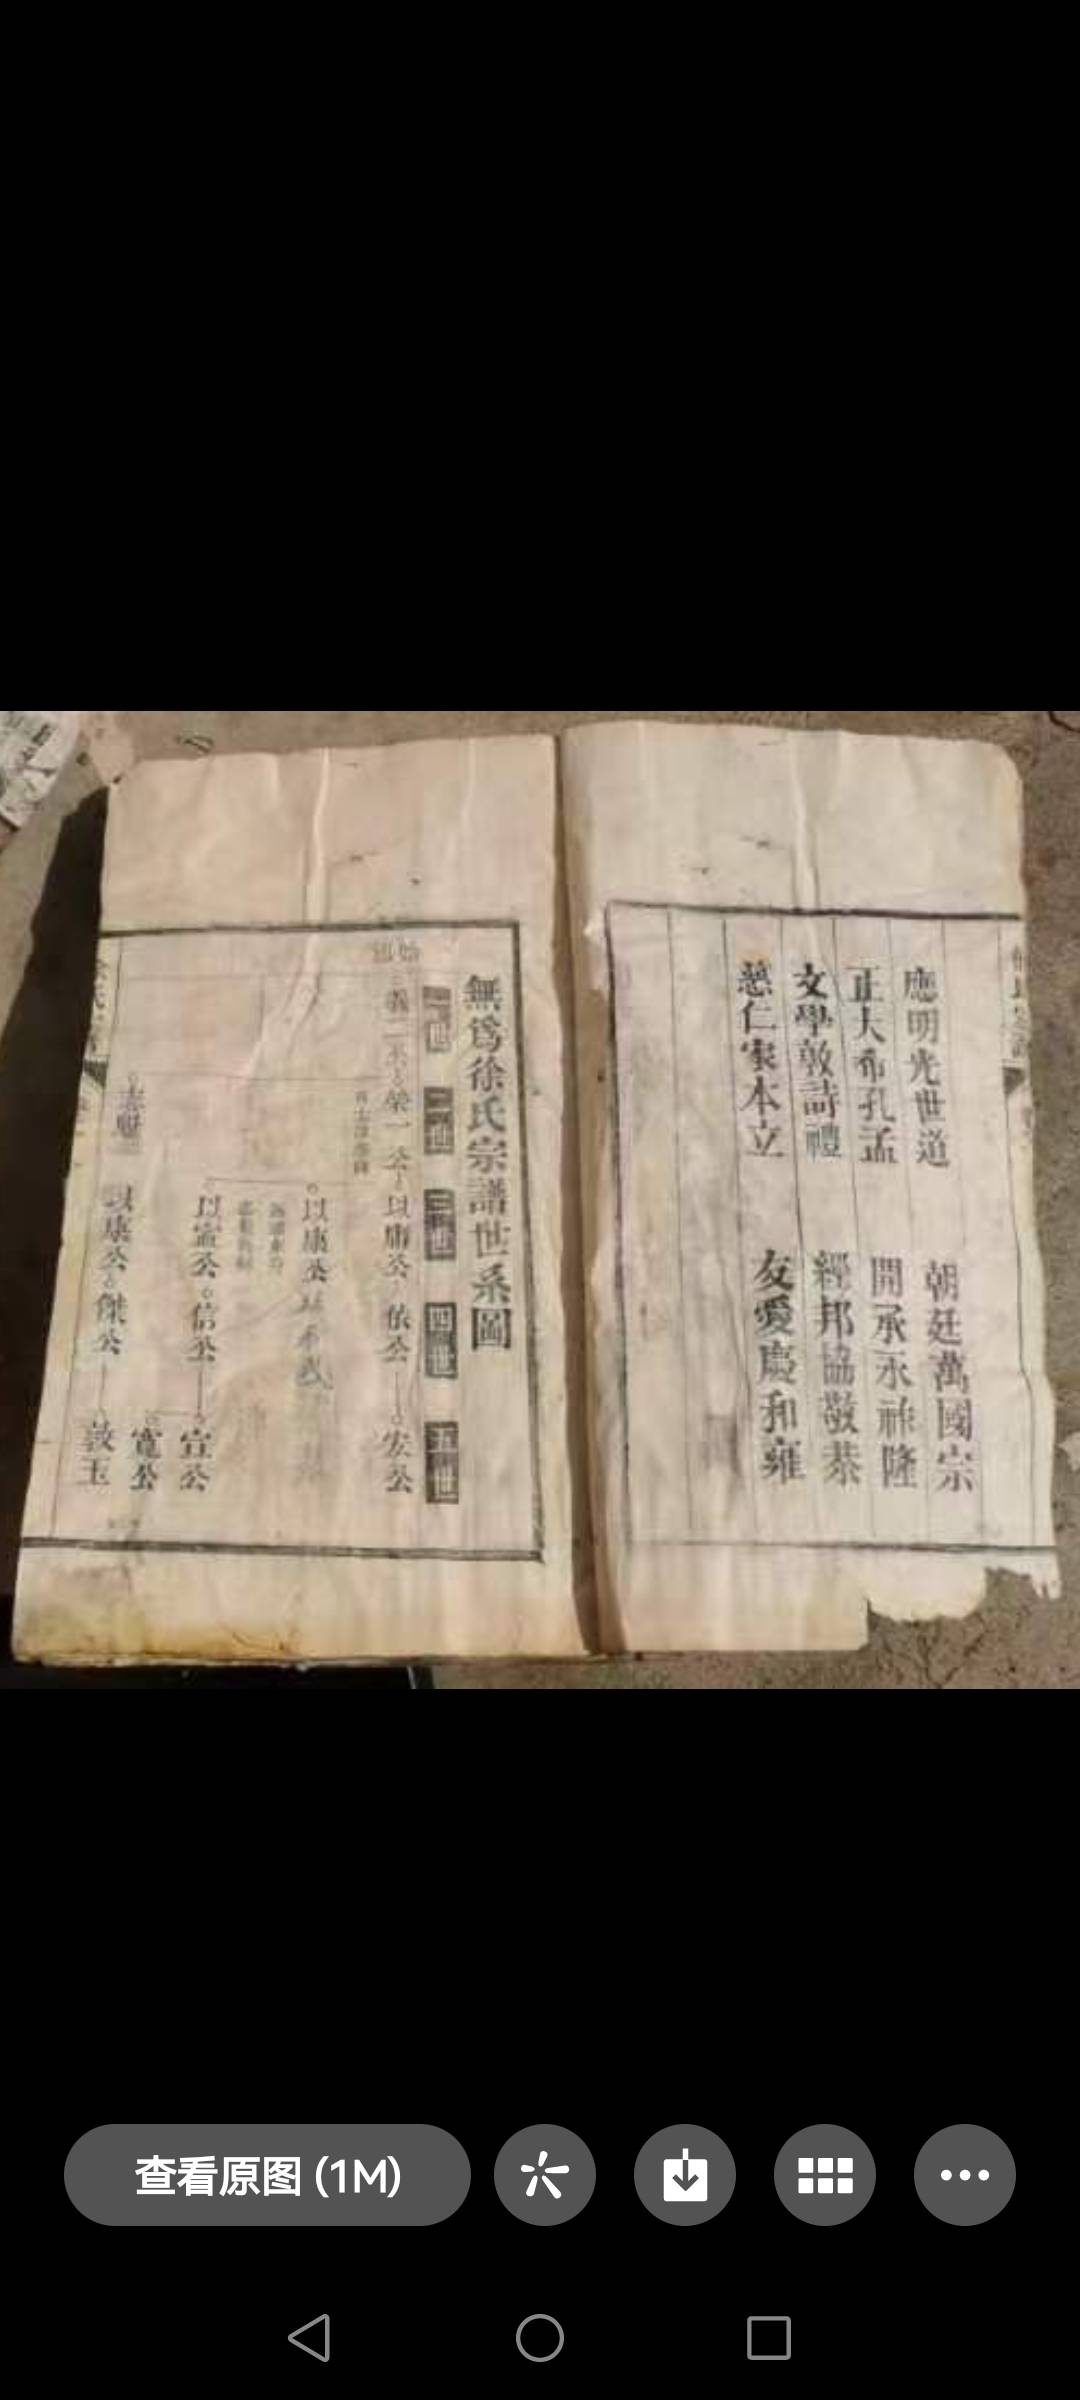 應明光世道
朝廷萬國宗
正大布孔孟
開承永祚隆
文學敦詩禮
經邦協敬恭
慈仁家本立
友愛慶和雍
無為徐氏宗譜世系圖
一世 二世 三世 四世 五世
榮一公 以庸公 依公 宏公
以康公
以寗公 信公 宣公
寬公
以康公 傑公 敦玉
查看原图 (1M)